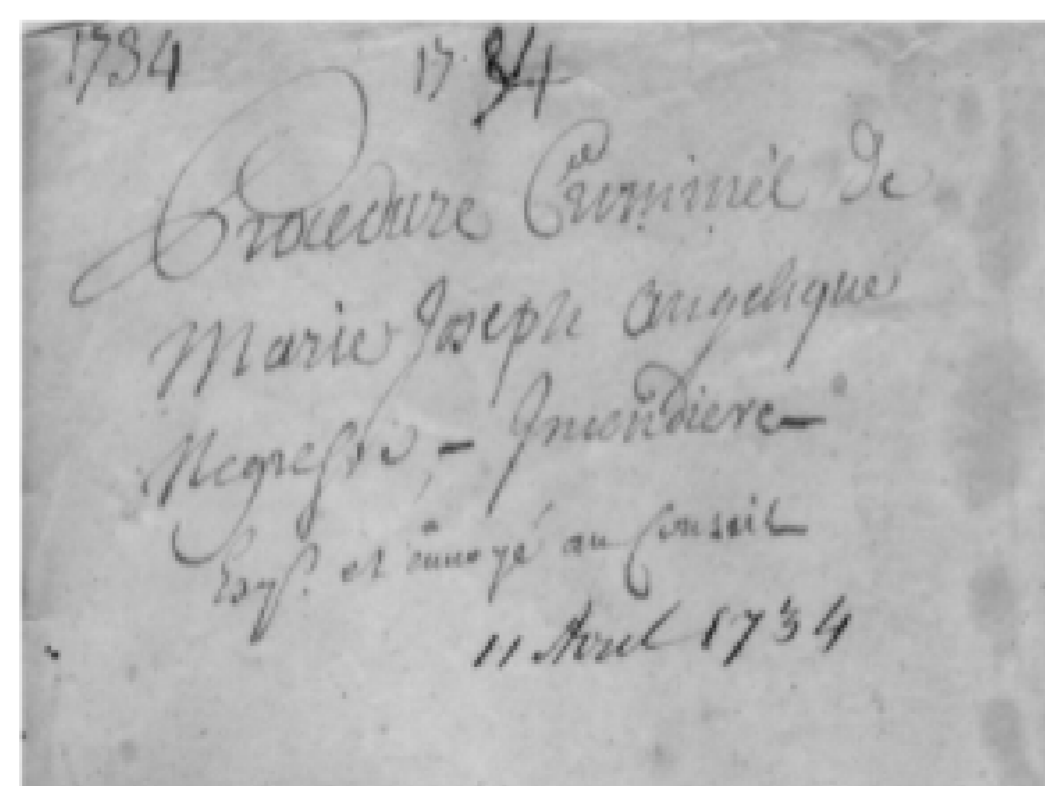 1734 1734
Procedure Criminel de
Marie Joseph Angelique
Negresse, - Incendiere -
et envoyé au Conseil
11 Avril 1734